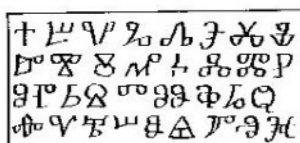 ⰀⰁⰂⰃⰄⰅⰆⰇ
ⰈⰊⰋⰌⰍⰎⰏⰐ
ⰑⰒⰓⰔⰕⰖⰗⰘⰙ
ⰛⰜⰝⰞⰟⰡⰣⰤ